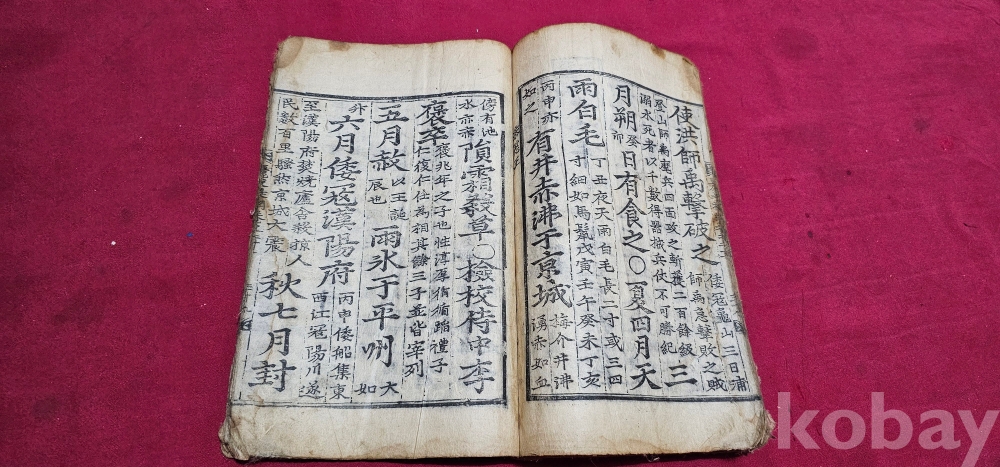 使洪師禹擊破之倭寇龜山三日浦
師禹急擊敗之賊
登山師禹麾兵四面攻之斬獲二百餘級
溺水死者以千數得器械兵仗不可勝紀三
月朔癸
卯日有食之〇夏四月天
雨白毛丁丑夜天雨白毛長二寸或三四
寸細如馬鬣戊寅壬午癸未丁亥
丙申亦
如之有井赤沸于京城梅介井沸
湧赤如血
傍有池
水亦赤隕霜殺草〇檢校侍中李
褒卒褒兆年之子也性淳厚循循蹈禮子
仁復仁任為相其餘三子並皆宰列
五月赦以王誕
辰也雨氷于平州大
如
六月倭寇漢陽府丙申倭船集東
西江寇陽川遂
至漢陽府焚燒廬舍殺掠人
民數百里騷然京城大震秋七月封
kobay